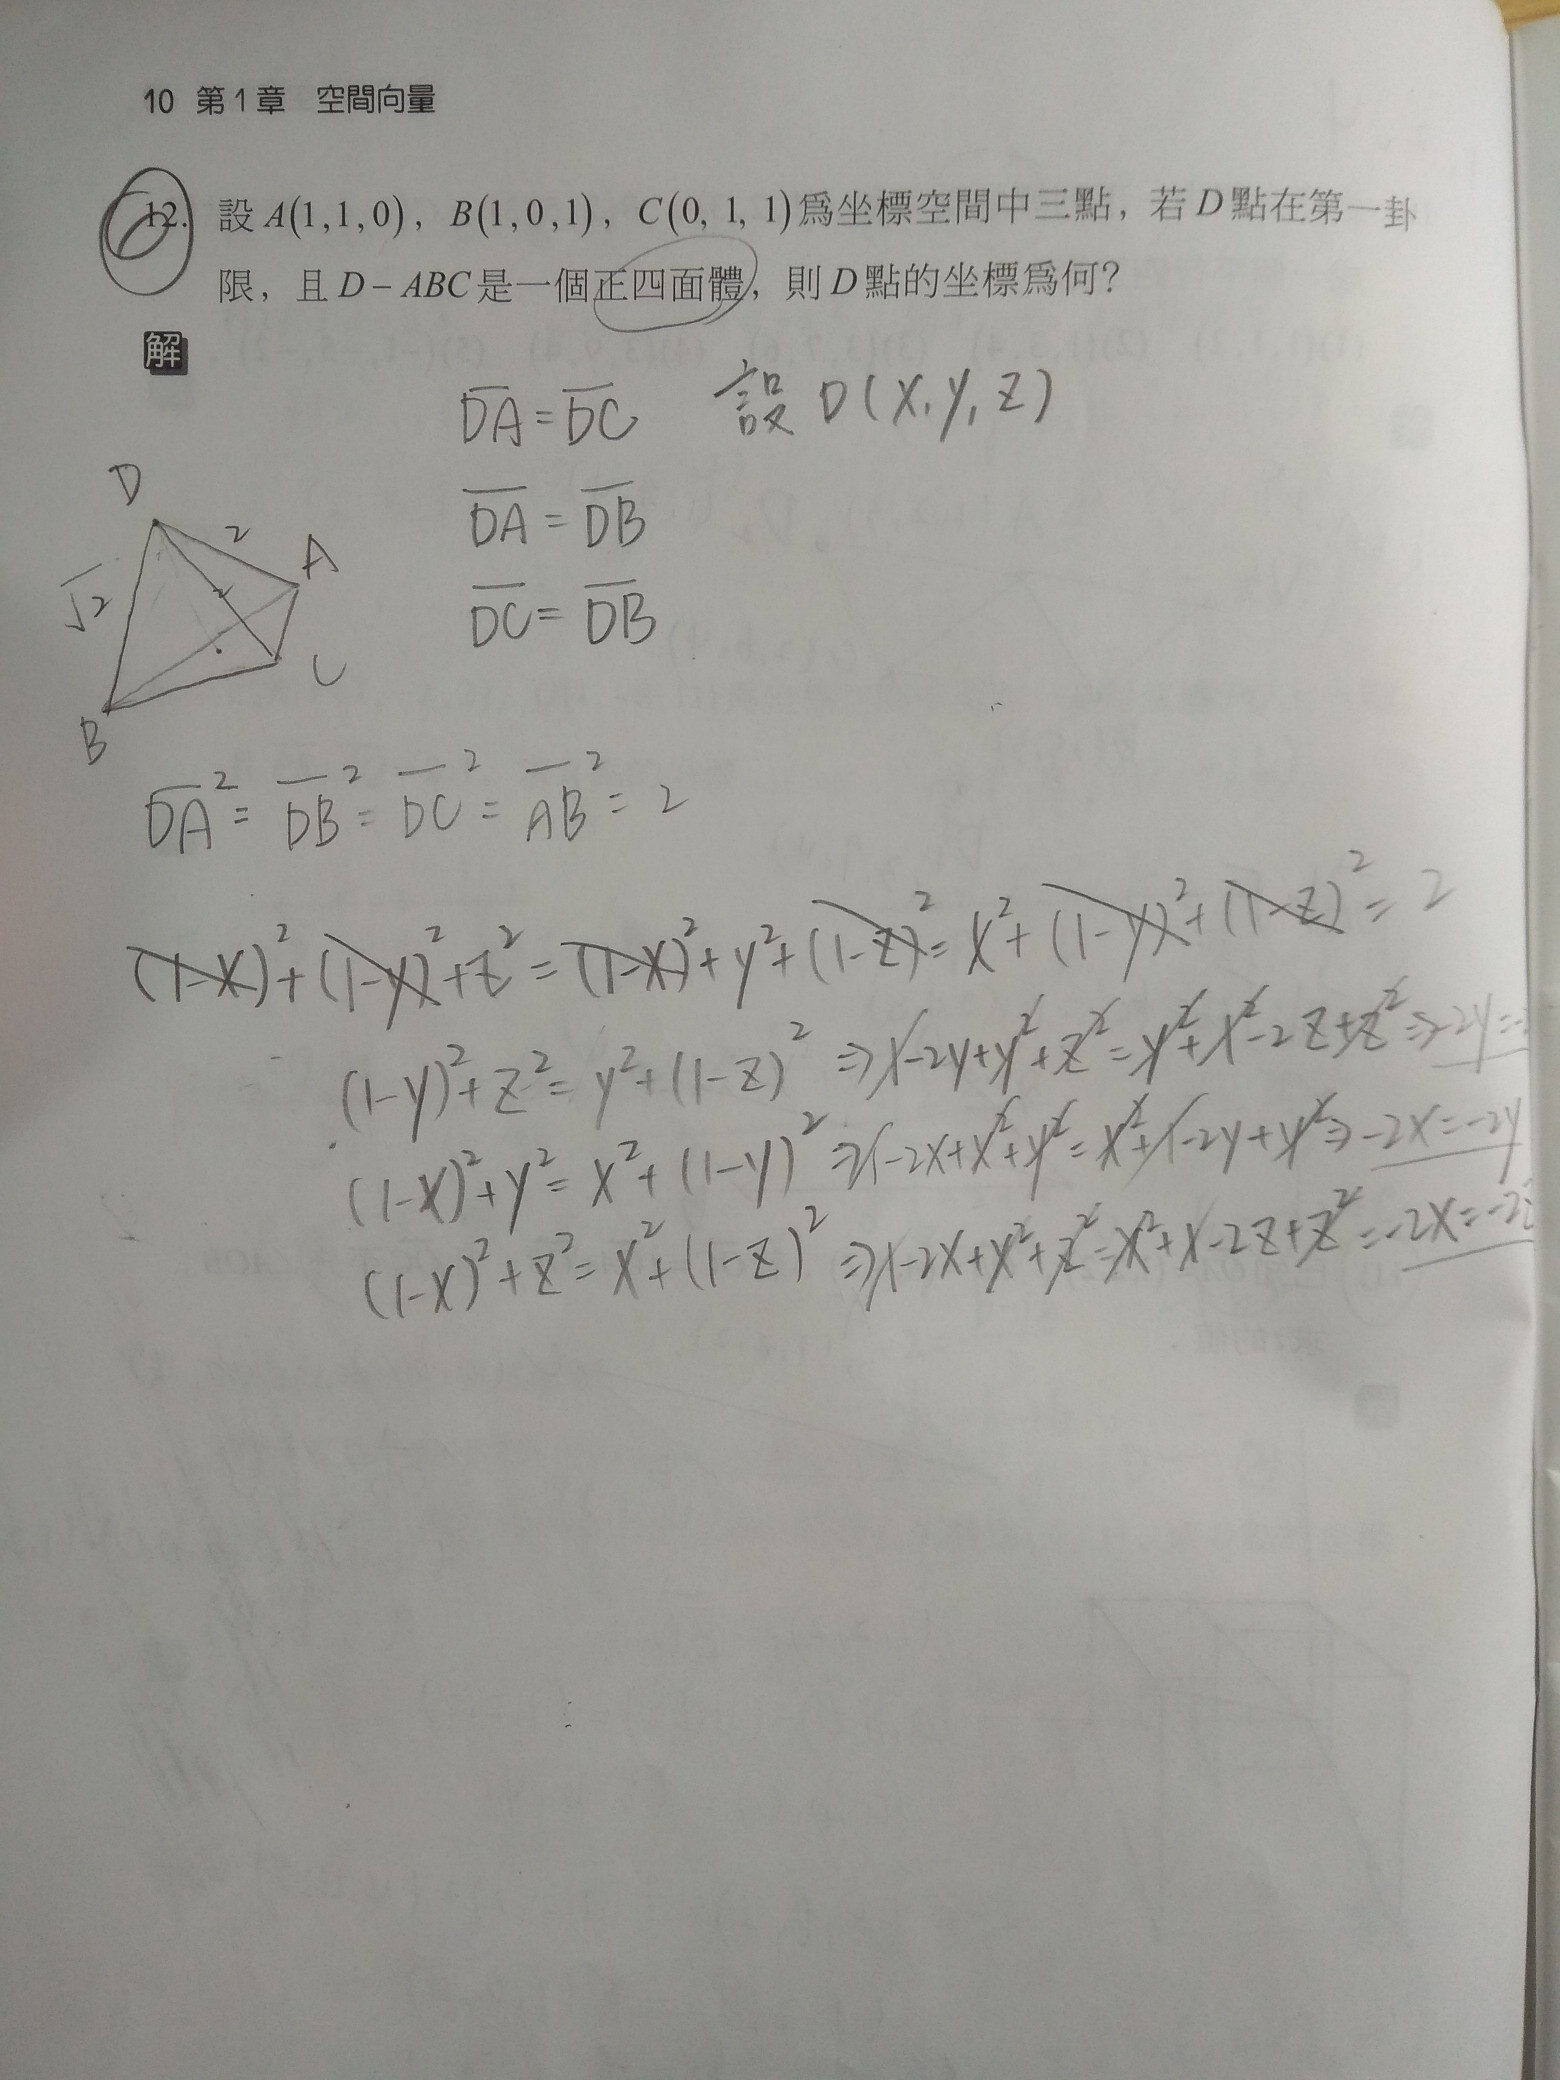 10 第1章 空間向量
12. 設A(1,1,0)，B(1,0,1)，C(0, 1, 1)爲坐標空間中三點，若D點在第一卦
限，且D－ABC是一個正四面體，則D點的坐標爲何？
解
DA=DC 設 D(x,y,z)
DA=DB
DC=DB
D
2
A
√2
C
B
DA²=DB²=DC²=AB²=2
(1-x)²+(1-y)²+z²=(1-x)²+y²+(1-z)²=x²+(1-y)²+(1-z)²=2
(1-y)²+z²=y²+(1-z)² ⇒1-2y+y²+z²=y²+1-2z+z²⇒-2y=
(1-x)²+y²=x²+(1-y)²⇒1-2x+x²+y²=x²+1-2y+y²⇒-2x=-2y
(1-x)²+z²=x²+(1-z)²⇒1-2x+x²+z²=x²+1-2z+z²=-2x=-2z